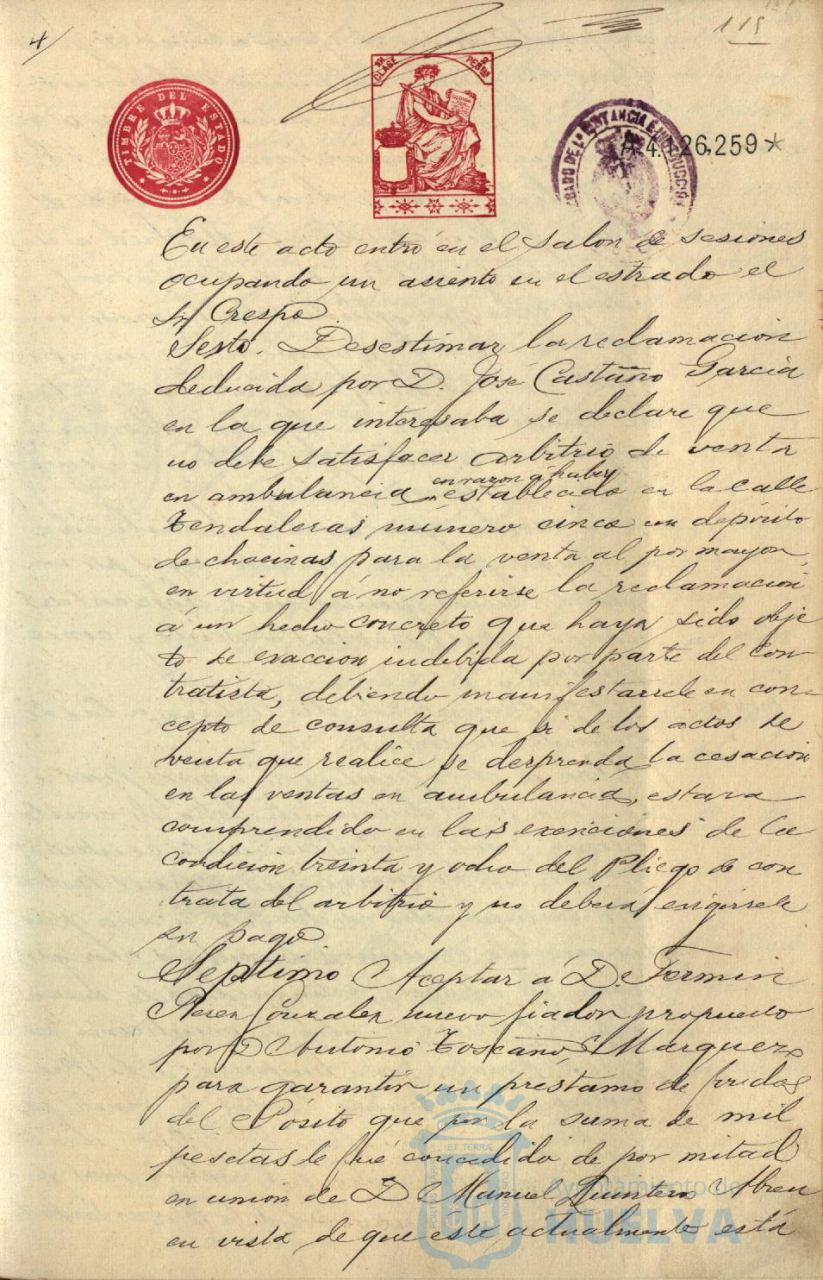 4/
115
TIMBRE DEL ESTADO
CLASE
PESETAS
JUZGADO DE 1ª INSTANCIA E INSTRUCCIÓN
A 4.126,259 *
En este acto entró en el salon de sesiones
ocupando un asiento en el estrado el
Sr Crespo.
Sesto. Desestimar la reclamacion
deducida por D. José Castaño Garcia
en la que interesaba se declare que
no debe satisfacer arbitrio de venta
en razon á haber
en ambulancia establecido en la calle
Tendaleras número cinco un depósito
de chacinas para la venta al por mayor,
en virtud á no referirse la reclamacion
á un hecho concreto que haya sido obje
to de exaccion indebida por parte del con-
tratista, debiendo manifestarsele en con-
cepto de consulta que si de los actos de
venta que realice se desprenda la cesacion
en las ventas en ambulancia, estará
comprendido en las exenciones de la
condicion treinta y ocho del pliego de con
trata del arbitrio y no deberá exigirsele
su pago
Septimo Aceptar á D. Fermin
Perez Gonzalez nuevo fiador propuesto
por D Antonio Toscano Marquez
para garantir un prestamo de fondos
del Pósito que por la suma de mil
pesetas le fué concedido de por mitad
en union de D Manuel Quintero Abreu
en vista de que este actualmente está
Ayuntamiento de
HUELVA